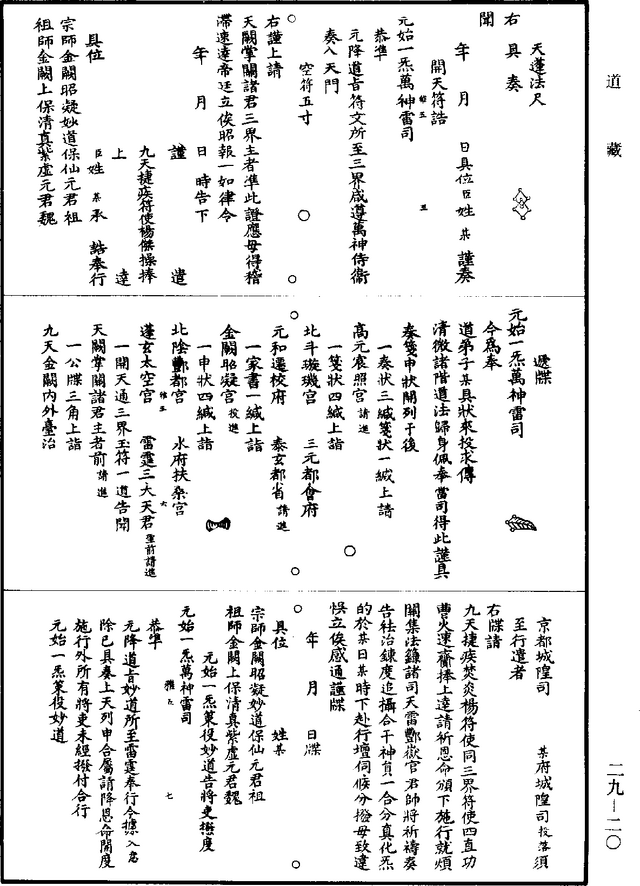 道藏
天蓬法尺
右具奏
聞
年 月 日具位臣姓某謹奏
開天符誥
雅五 五
元始一炁萬神雷司
恭準
元降道旨符文所至三界咸遵萬神侍衛
奏入天門
空符五寸
右謹上請
天闕掌關諸君三界主者準此證應毋得稽
滯速達帝廷立俟昭報一如律令
年 月 日 時告下
謹 遣
九天捷疾符使楊傑操捧
上 達
具位 臣姓某承 誥奉行
宗師金闕昭凝妙道保仙元君祖
祖師金闕上保清真紫虛元君魏
遞牒
元始一炁萬神雷司
今為奉
道弟子某具狀來投求傳
清微諸階道法歸身佩奉當司得此謹具
奏箋申狀開列于後
一奏狀三緘箋狀一緘上請
高元宸照宮請進
一箋狀四緘上詣
北斗璇璣宮 三元都會府
元和遷校府 泰玄都省請進
一家書一緘上詣
金闕昭凝宮投進
一申狀四緘上詣
北陰酆都宮 水府扶桑宮
雅五 六
蓬玄太空宮 雷霆三大天君聖前請進
一開天通三界玉符一道告聞
天闕掌關諸君主者前請進
一公牒三角上詣
九天金闕內外臺治
京都城隍司 某府城隍司投落須
至行遣者
右牒請
九天捷疾焚炎楊符使同三界符使四直功
曹火速齎捧上達請祈恩命頒下施行就煩
關集法籙諸司天雷酆嶽官君師將祈禱奏
告袪治鍊度追攝合干神員一合分真化炁
的於某日某時下赴行壇伺候分撥毋致違
悞立俟感通謹牒
年 月 日牒
具位 姓某
宗師金闕昭凝妙道保仙元君祖
祖師金闕上保清真紫虛元君魏
元始一炁策役妙道告將吏撥度
雅五 七
元始一炁萬神雷司
恭準
元降道旨妙道所至雷霆奉行今據入意
除已具奏上天列申合屬請降恩命開度
施行外所有將吏未經撥付合行
元始一炁策役妙道
二九—二〇